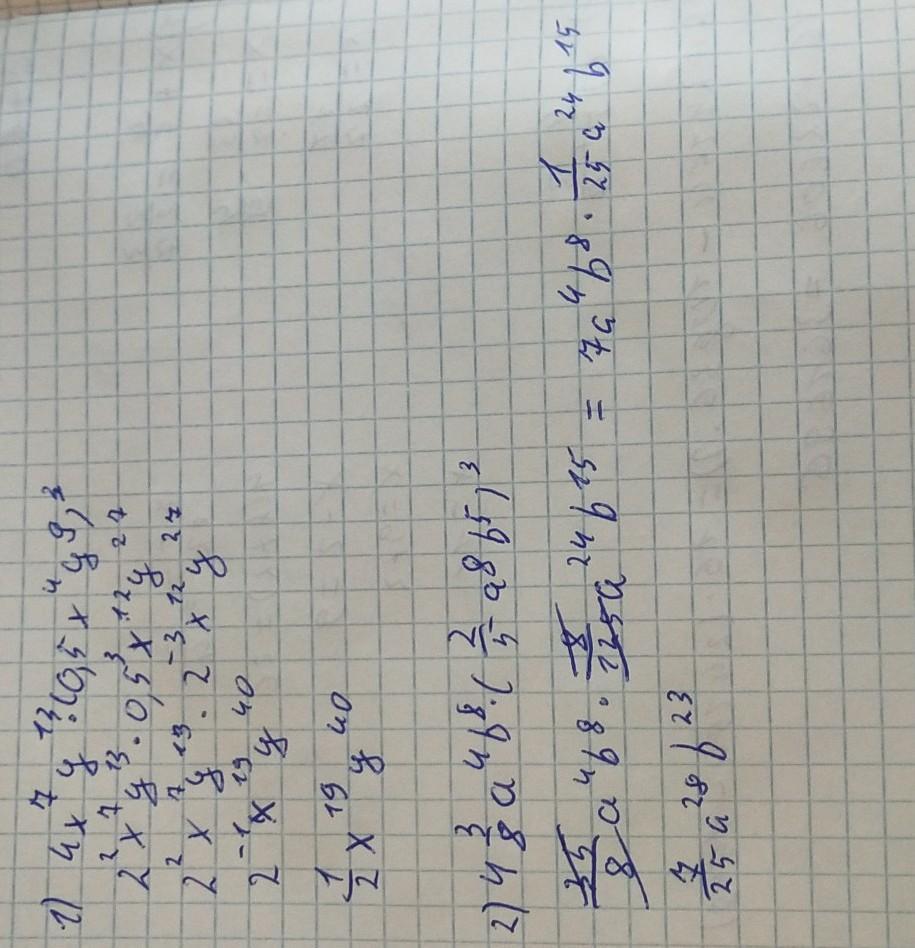 1) 4x⁷y¹³·(0,5x⁴y⁹)³
2²x⁷y¹³·0,5³x¹²y²⁷
2²x⁷y¹³·2⁻³x¹²y²⁷
2⁻¹x¹⁹y⁴⁰
1/2 x¹⁹y⁴⁰
2) 4 3/8 a⁴b⁸·(2/5 a⁸b⁵)³
35/8 a⁴b⁸·8/125 a²⁴b¹⁵ = 7a⁴b⁸·1/25 a²⁴b¹⁵
7/25 a²⁸b²³